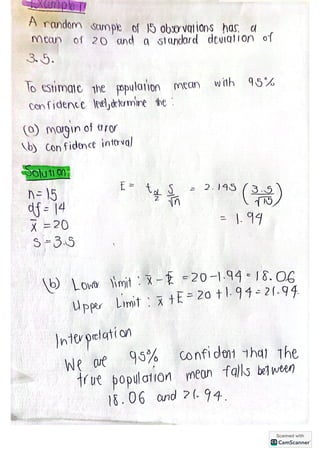 Example 1
A random sample of 15 observations has a
mean of 20 and a standard deviation of
3.5.
To estimate the population mean with 95%
confidence level, determine the:
(a) margin of error
(b) confidence interval
Solution:
n = 15
df = 14
x̄ = 20
s = 3.5
E = t α/2 s/√n = 2.145 (3.5/√15)
= 1.94
(b) Lower limit: x̄ - E = 20 - 1.94 = 18.06
Upper Limit: x̄ + E = 20 + 1.94 = 21.94
Interpretation
We are 95% confident that the
true population mean falls between
18.06 and 21.94.
Scanned with
CS CamScanner